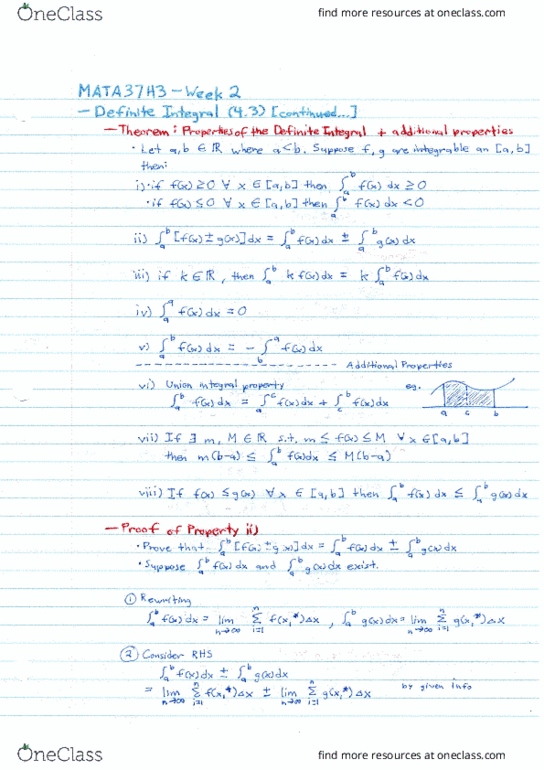 OneClass
find more resources at oneclass.com
MATA37H3 - Week 2
- Definite Integral (4.3) [continued...]
- Theorem: Properties of the Definite Integral + additional properties
• Let a,b ∈ ℝ where a<b. Suppose f, g are integrable an [a,b]
then:
i) • if f(x) ≥ 0 ∀ x ∈ [a,b] then ∫_a^b f(x) dx ≥ 0
• if f(x) ≤ 0 ∀ x ∈ [a,b] then ∫_a^b f(x) dx < 0
ii) ∫_a^b [f(x) ± g(x)] dx = ∫_a^b f(x) dx ± ∫_a^b g(x) dx
iii) if k ∈ ℝ, then ∫_a^b k f(x) dx = k ∫_a^b f(x) dx
iv) ∫_a^a f(x) dx = 0
v) ∫_a^b f(x) dx = - ∫_b^a f(x) dx
Additional Properties
vi) Union integral property eg.
∫_a^b f(x) dx = ∫_a^c f(x) dx + ∫_c^b f(x) dx
a c b
vii) If ∃ m, M ∈ ℝ s.t. m ≤ f(x) ≤ M ∀ x ∈ [a,b]
then m(b-a) ≤ ∫_a^b f(x) dx ≤ M(b-a)
viii) If f(x) ≤ g(x) ∀ x ∈ [a,b] then ∫_a^b f(x) dx ≤ ∫_a^b g(x) dx
- Proof of Property ii)
• Prove that ∫_a^b [f(x) ± g(x)] dx = ∫_a^b f(x) dx ± ∫_a^b g(x) dx
• Suppose ∫_a^b f(x) dx and ∫_a^b g(x) dx exist.
① Rewriting
∫_a^b f(x) dx = lim_{n→∞} Σ_{i=1}^n f(x_i*) Δx , ∫_a^b g(x) dx = lim_{n→∞} Σ_{i=1}^n g(x_i*) Δx
② Consider RHS
∫_a^b f(x) dx ± ∫_a^b g(x) dx
= lim_{n→∞} Σ_{i=1}^n f(x_i*) Δx ± lim_{n→∞} Σ_{i=1}^n g(x_i*) Δx by given info
OneClass
find more resources at oneclass.com